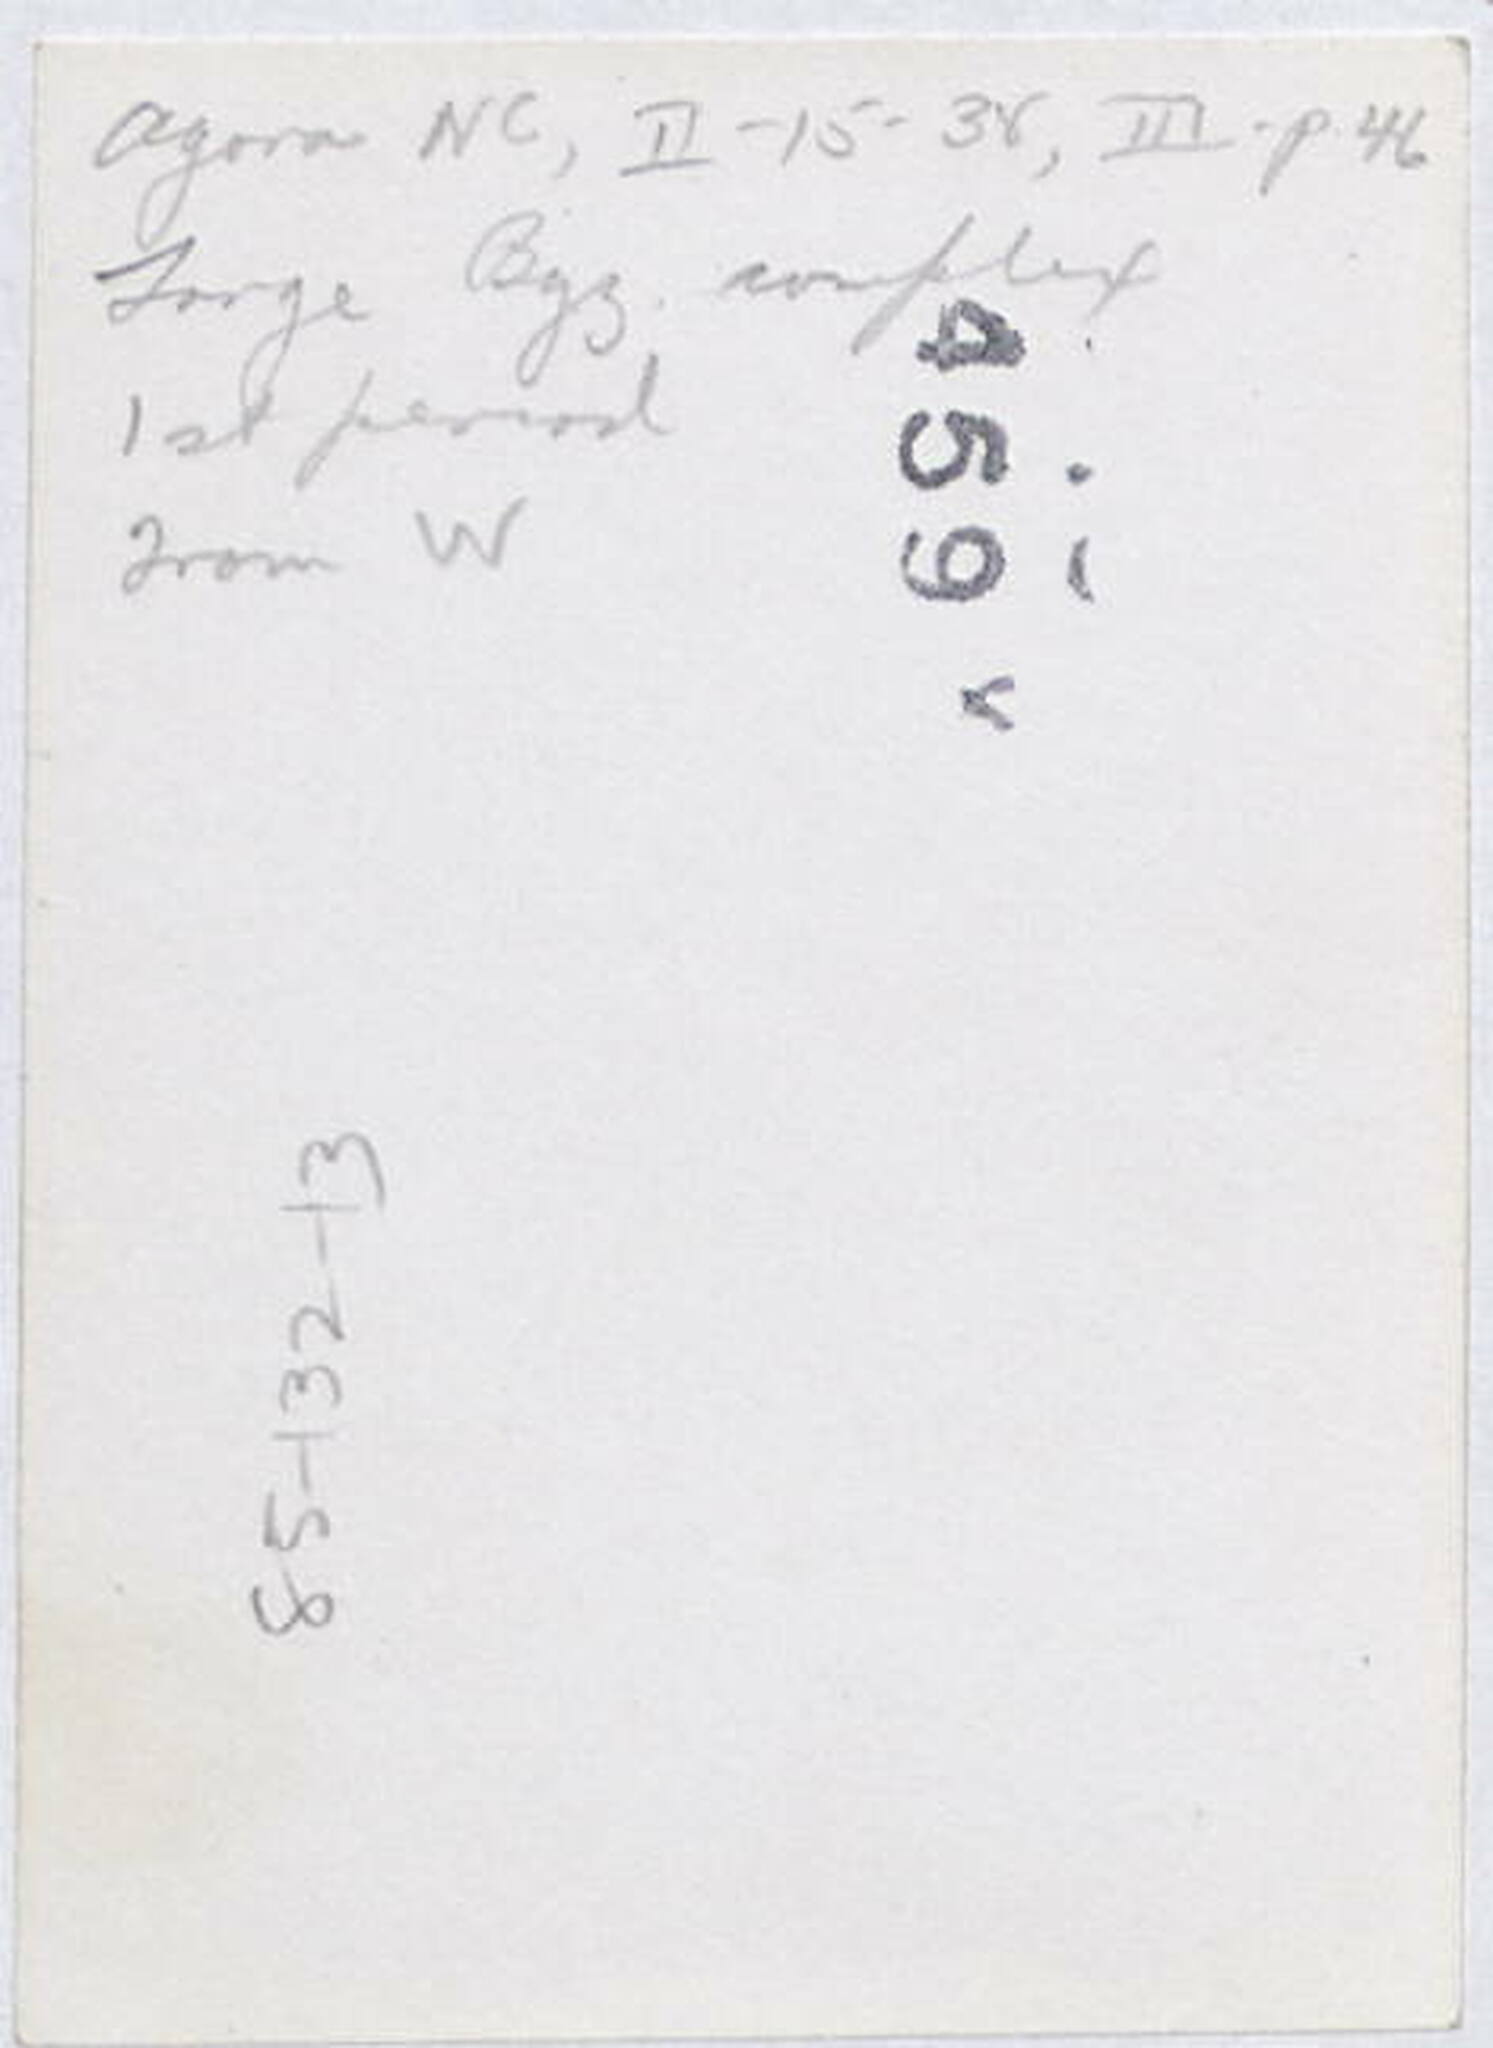 Agora NC, II-15-38, III-p.46
Large Byz. complex
1st period
From W
459
85-132-13